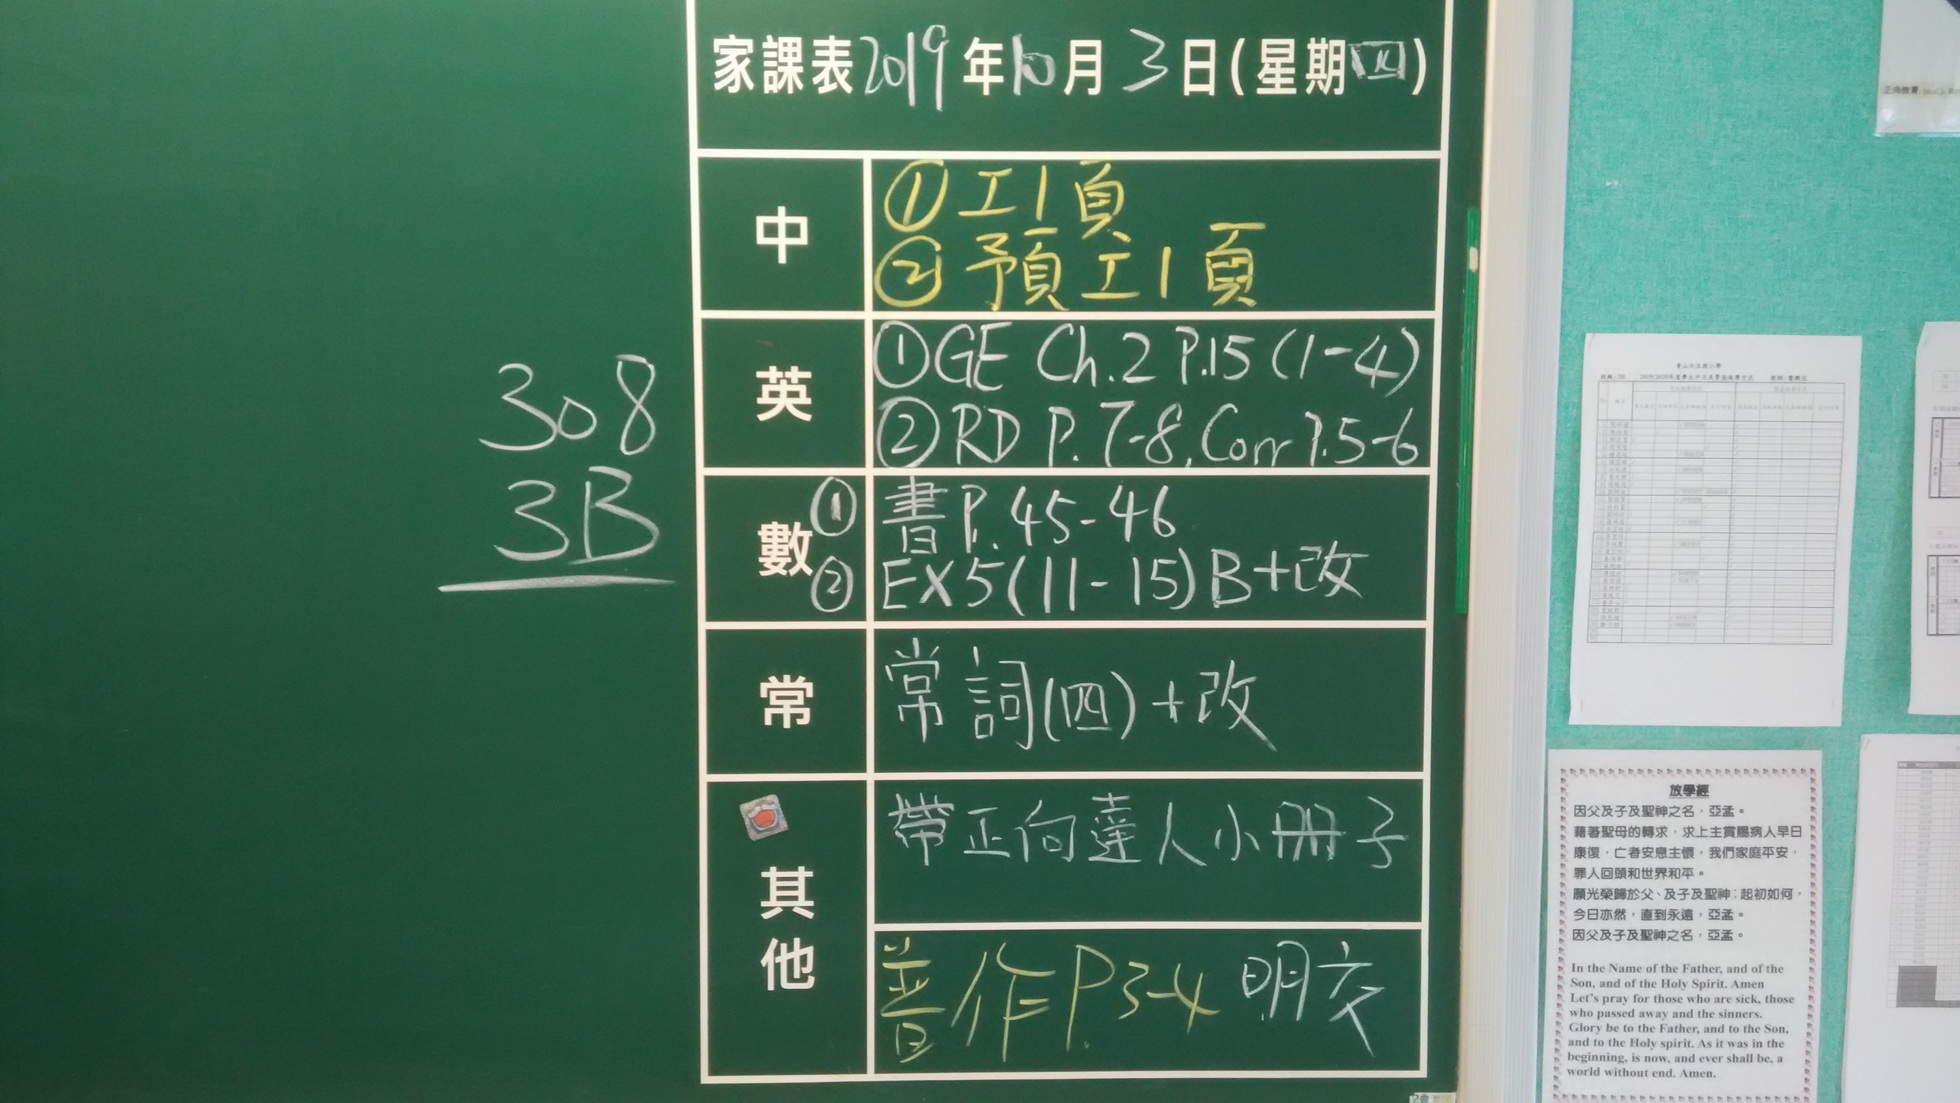 家課表2019年10月3日(星期四)
中
①工1頁
②預工1頁
英
①GE Ch.2 P.15 (1-4)
②RD P.7-8, Corr P.5-6
308
3B
數
①書P.45-46
②EX5(11-15)B+改
常
常詞(四)+改
其他
帶正向達人小冊子
普作P.3-4 明交
正向教育
放學經
因父及子及聖神之名，亞孟。
藉著聖母的轉求，求上主賞賜病人早日
康復，亡者安息主懷，我們家庭平安，
罪人回頭和世界和平。
願光榮歸於父、及子及聖神；起初如何，
今日亦然，直到永遠，亞孟。
因父及子及聖神之名，亞孟。
In the Name of the Father, and of the
Son, and of the Holy Spirit. Amen
Let's pray for those who are sick, those
who passed away and the sinners.
Glory be to the Father, and to the Son,
and to the Holy spirit. As it was in the
beginning, is now, and ever shall be, a
world without end. Amen.